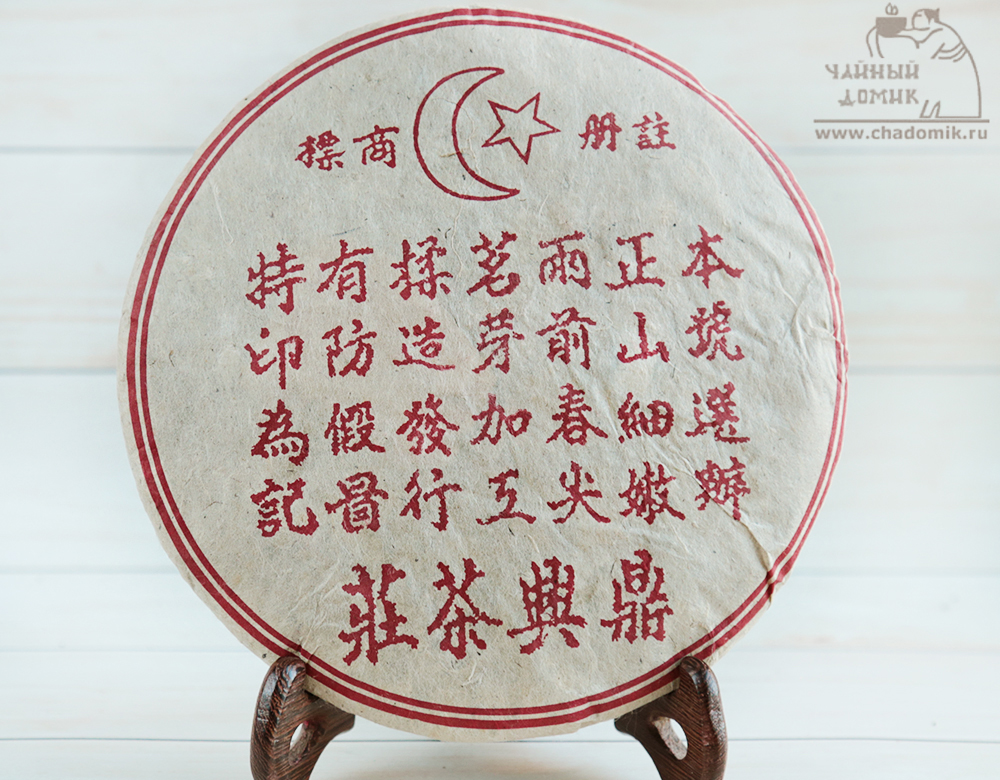 註册商標
本號選辦
正山細嫩
雨前春尖
茗芽加工
揉造發行
有防假啚
特印為記
鼎興茶莊
ЧАЙНЫЙ
ДОМИК
www.chadomik.ru